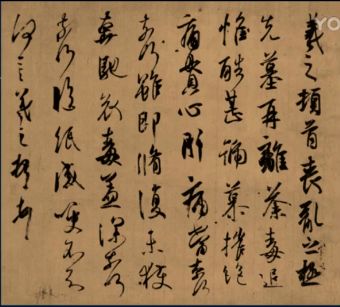 YO
羲之頓首喪亂之極
先墓再離荼毒追
惟酷甚號慕摧絕
痛貫心肝痛當奈何
奈何雖即脩復未獲
奔馳哀毒益深奈何
奈何臨紙感哽不知
何言羲之頓首頓首